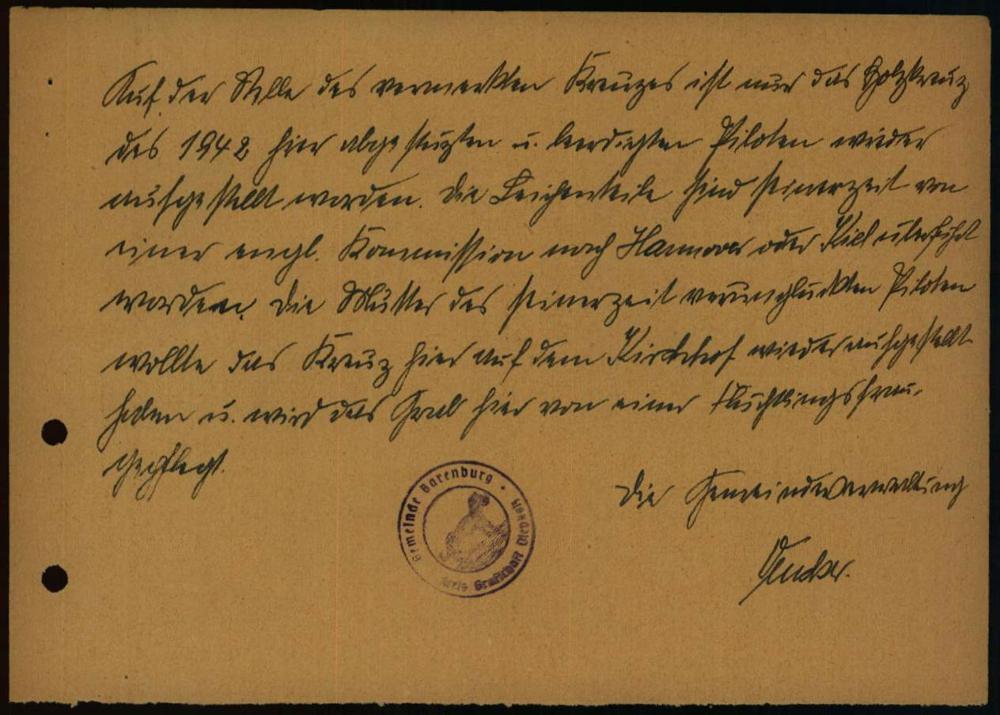 Auf der Stelle des vermerkten Kreuzes ist nur das Holzkreuz
des 1942 hier abgestürzten u. beerdigten Piloten wieder
aufgestellt worden. Die Leichenteile sind seinerzeit von
einer engl. Kommission nach Hannover oder Kiel überführt
worden. Die Mutter des seinerzeit verunglückten Piloten
wollte das Kreuz hier auf dem Kirchhof wieder aufgestellt
haben u. wird das Grab hier von einer Flüchtlingsfrau
gepflegt.
Die Gemeindeverwaltung
Gemeinde Barenburg • Kreis Grafschaft Diepholz